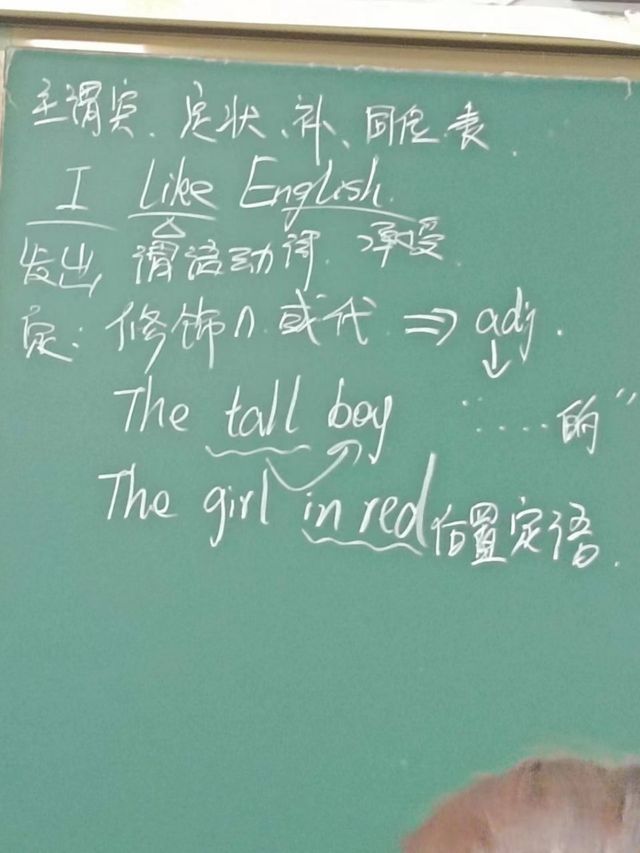 主谓宾、定状、补、同位.表.
I Like English.
发出 谓语动词. 承受
定：修饰n.或代 ⇒ adj.
The tall boy "……的"
The girl in red 后置定语.